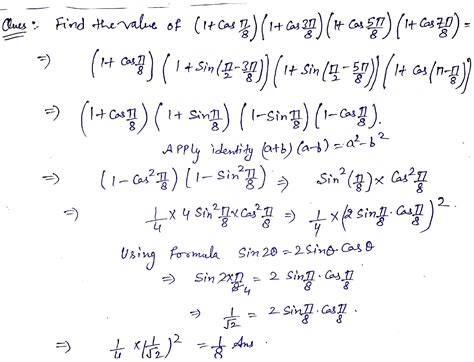 Ques: Find the value of (1+Cos π/8)(1+Cos 3π/8)(1+Cos 5π/8)(1+Cos 7π/8) =
⇒ (1+Cos π/8)(1+Sin(π/2-3π/8))(1+Sin(π/2-5π/8))(1+Cos(π-π/8))
⇒ (1+Cos π/8)(1+Sin π/8)(1-Sin π/8)(1-Cos π/8).
APPly identity (a+b)(a-b)=a²-b²
⇒ (1-Cos² π/8)(1-Sin² π/8) ⇒ Sin²(π/8) × Cos² π/8
⇒ 1/4 × 4 Sin² π/8 × Cos² π/8 ⇒ 1/4 × (2 Sin π/8 · Cos π/8)²
Using Formula Sin 2θ = 2 Sinθ · Cosθ
⇒ Sin 2×π/8 4 = 2 Sin π/8 · Cos π/8
⇒ 1/√2 = 2 Sin π/8 · Cos π/8 .
⇒ 1/4 × (1/√2)² = 1/8 Ans.